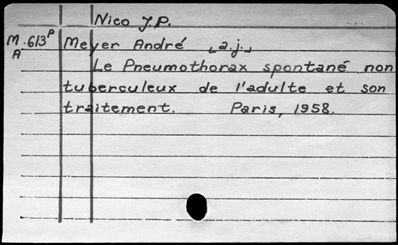 Nico J.P.
M.613ᴾ Meyer André ⌞a.j.⌟
A
Le Pneumothorax spontané non
tuberculeux de l'adulte et son
traitement. Paris, 1958.